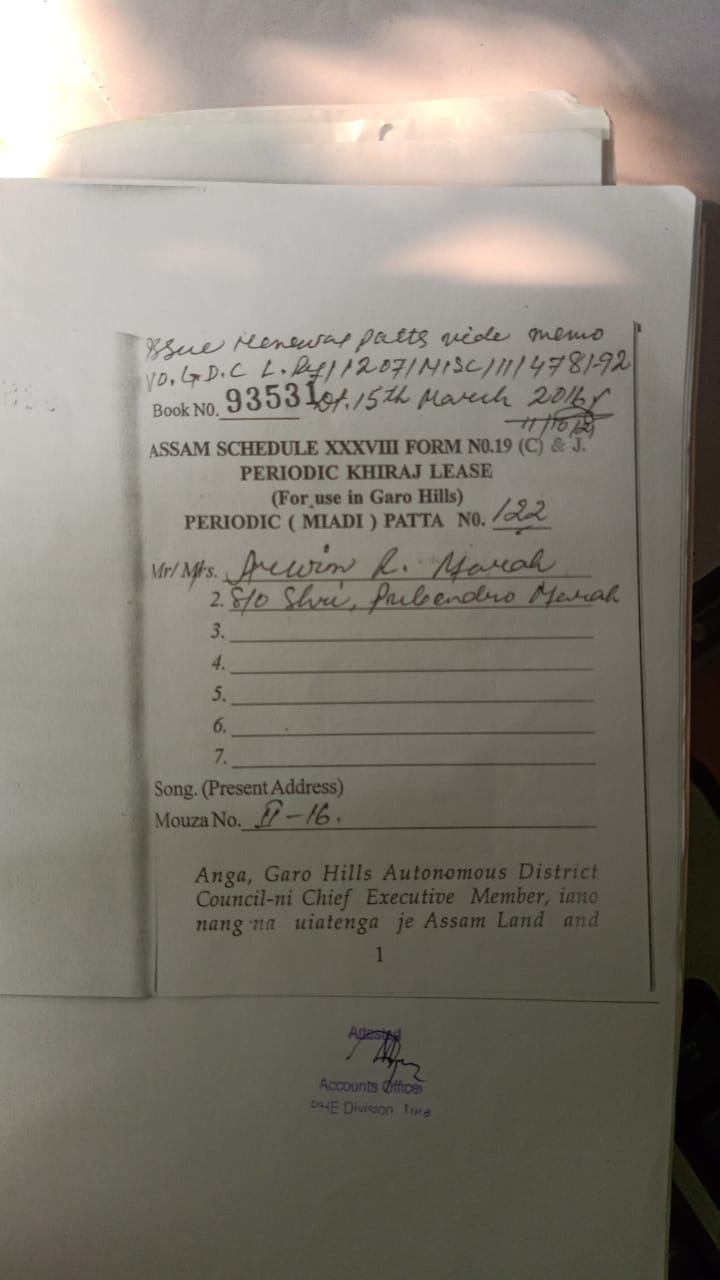 Issue renewal patta vide memo
no. G.D.C L. Rev/1207/MISC/11/4781-92
Book N0. 93531 Dt. 15th March 2016
ASSAM SCHEDULE XXXVIII FORM N0.19 (C) & J.
PERIODIC KHIRAJ LEASE
(For use in Garo Hills)
PERIODIC ( MIADI ) PATTA N0. 122
Mr/Mrs. R. Marak
2. S/O Shri, Marak
3.
4.
5.
6.
7.
Song. (Present Address)
Mouza No. II-16.
Anga, Garo Hills Autonomous District
Council-ni Chief Executive Member, iano
nang na uiatenga je Assam Land and
1
Attested
Accounts Officer
PHE Division Tura